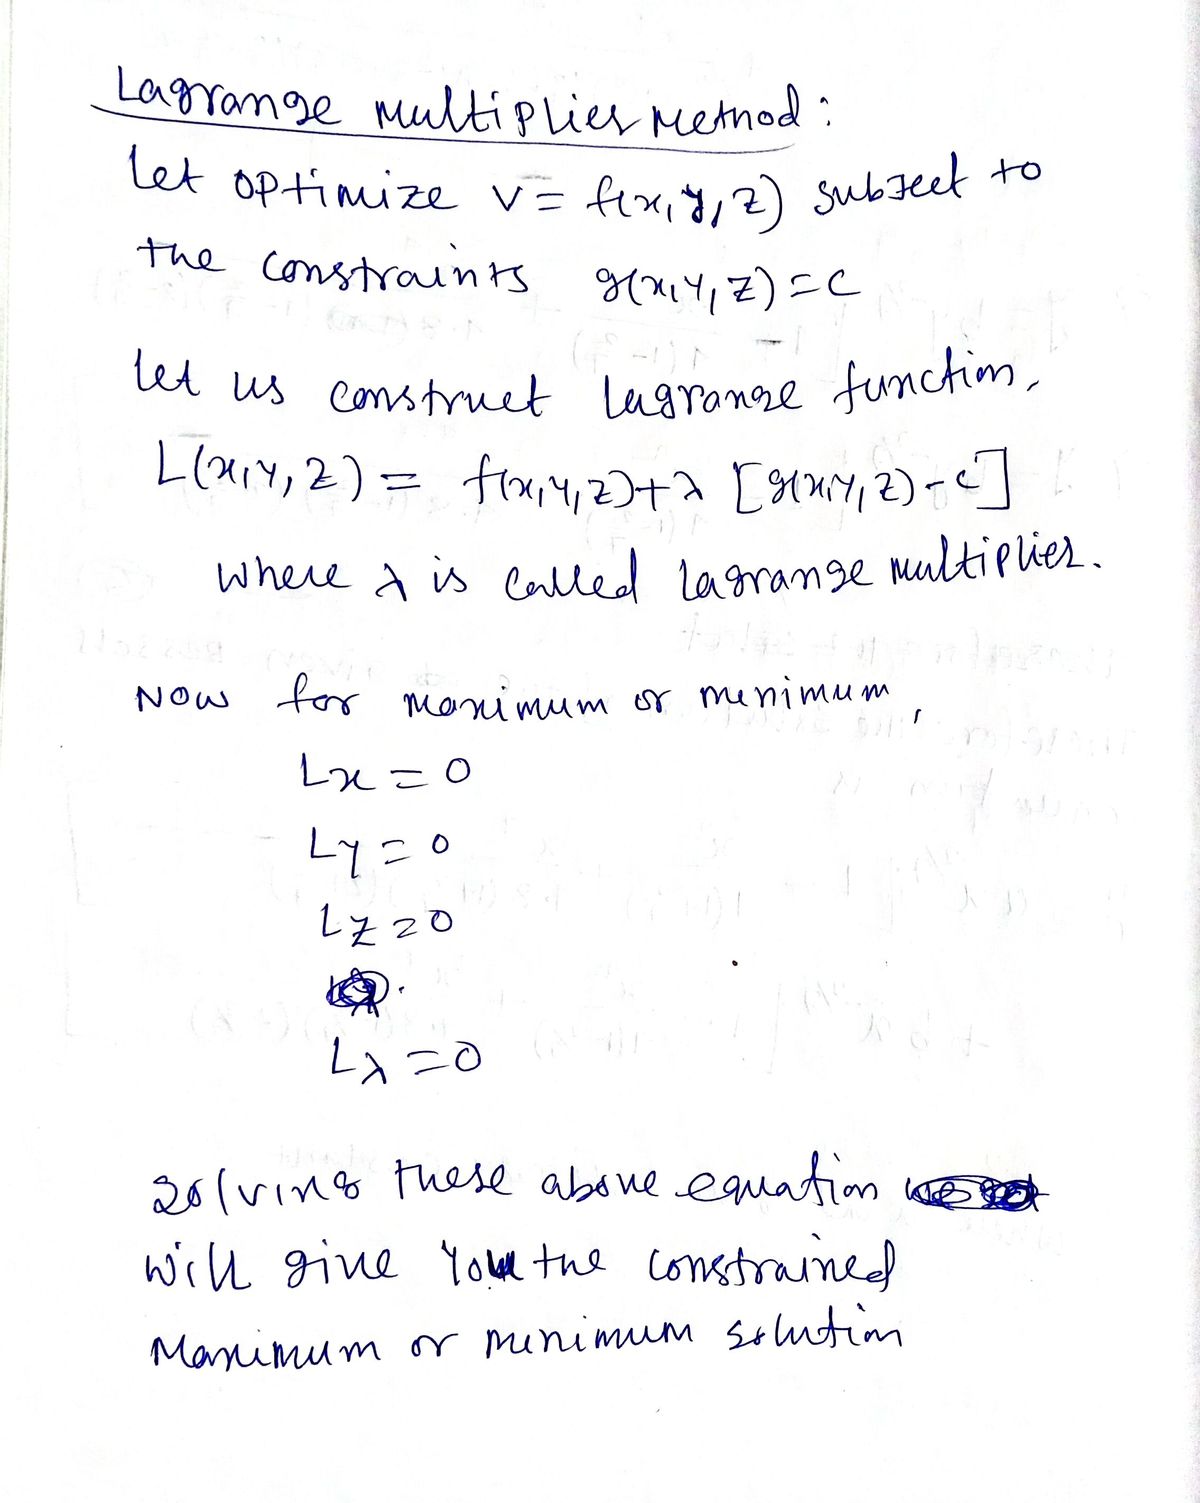 Lagrange Multiplier Method:
Let optimize V = f(x, y, z) subject to
the constraints g(x, y, z) = c
Let us construct Lagrange function,
L(x, y, z) = f(x, y, z) + λ [g(x, y, z) - c]
where λ is called Lagrange multiplier.
Now for maximum or minimum,
Lx = 0
Ly = 0
Lz = 0
Lλ = 0
Solving these above equation
will give you the constrained
Maximum or minimum solution